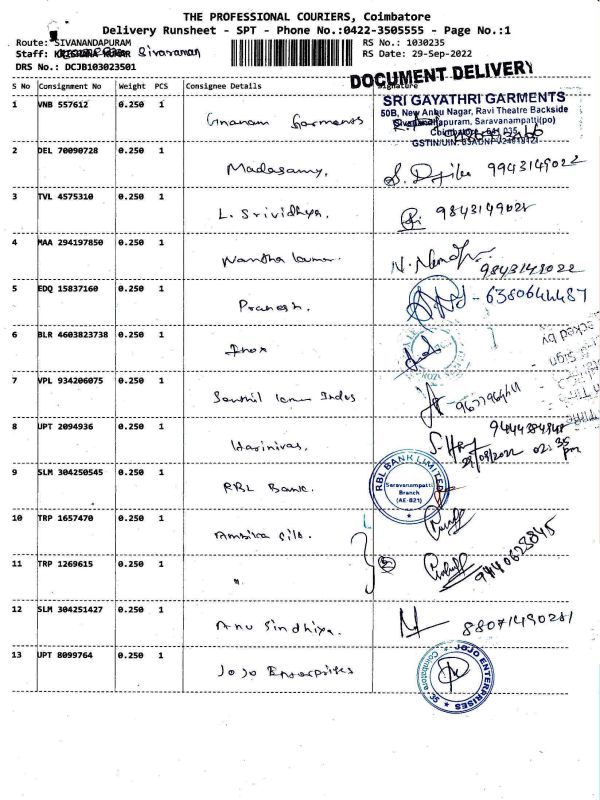 THE PROFESSIONAL COURIERS, Coimbatore
Delivery Runsheet - SPT - Phone No.:0422-3505555 - Page No.:1
Route: SIVANANDAPURAM
RS No.: 1030235
Staff: KRISHNA KUMAR Sivaraman
RS Date: 29-Sep-2022
DRS No.: DCJB103023501
DOCUMENT DELIVERY
S No Consignment No Weight PCS Consignee Details Signature
SRI GAYATHRI GARMENTS
50B, New Anbu Nagar, Ravi Theatre Backside
Sivanandapuram, Saravanampatti(po)
Coimbatore - 641 035
GSTIN/UIN:
1 VNB 557612 0.250 1 Gnanam Garments
2 DEL 70090728 0.250 1 Madasamy. 9943149022
3 TVL 4575310 0.250 1 L. Srividhya. 9843149022
4 MAA 294197850 0.250 1 Nantha kumar. 9843149022
5 EDQ 15837160 0.250 1 Pranesh. 6380644487
6 BLR 4603823738 0.250 1 Inox
7 VPL 934206075 0.250 1 Senthil kumar Indus
8 UPT 2094936 0.250 1 Harinivas. 02:35 pm
9 SLM 304250545 0.250 1 RBL Bank.
RBL BANK LIMITED
Saravanampatti
Branch
(AE-821)
10 TRP 1657470 0.250 1 Ambika
11 TRP 1269615 0.250 1 " 9440623845
12 SLM 304251427 0.250 1 Anu Sindhiya. 8807149021
13 UPT 8099764 0.250 1 JoJo Enterprises
JOJO ENTERPRISES
Coimbatore - 35